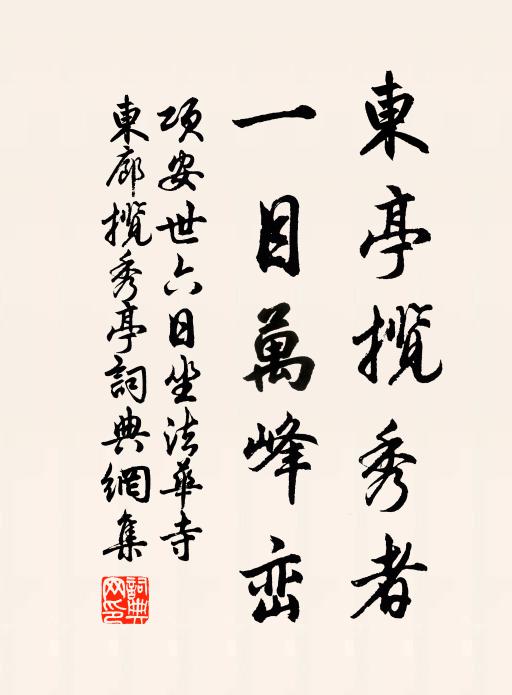 東亭攬秀者
一目萬峰巒
項安世六日坐法華寺
東廊攬秀亭詞典網集
詞典
网印